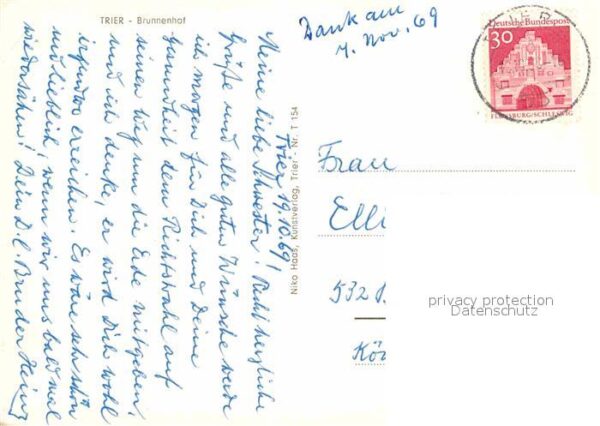 TRIER - Brunnenhof
Dank am
7. Nov. 69
TRIER
Deutsche Bundespost
30
FLENSBURG/SCHLESWIG
Trier 19.10.69
Meine liebe Schwester! Recht herzliche
Grüße und alle guten Wünsche werde
ich morgen für Dich und Deine
Gesundheit dem Richtstrahl auf
seinen Weg um die Erde mitgeben,
und ich denke, er wird Dich wohl
irgendwo erreichen. Es wäre sehr schön
und lieblich, wenn wir uns bald mal
wiedersähen! Dein D. l. Bruder Heinz
Niko Haas, Kunstverlag, Trier - Nr. T 154
Frau
Elli
532
privacy protection
Datenschutz